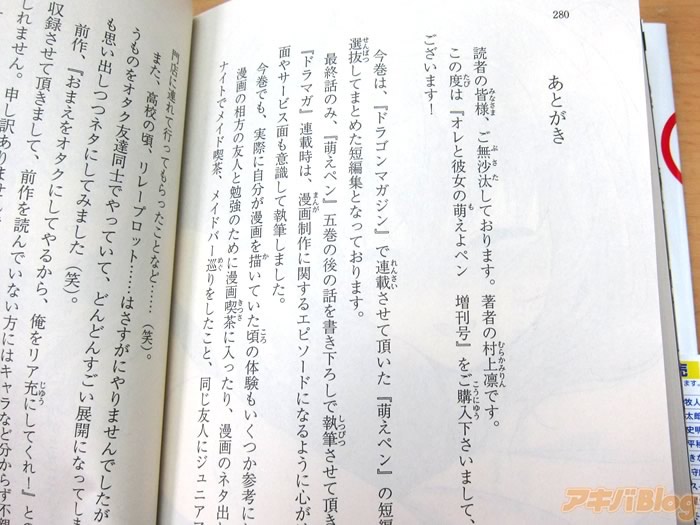 280
あとがき
読者の皆様、ご無沙汰しております。著者の村上凛です。
この度は『オレと彼女の萌えよペン 増刊号』をご購入下さいまして、
ございます!
今巻は、『ドラゴンマガジン』で連載させて頂いた『萌えペン』の短編
選抜してまとめた短編集となっております。
最終話のみ、『萌えペン』五巻の後の話を書き下ろしで執筆させて頂き
『ドラマガ』連載時は、漫画制作に関するエピソードになるように心が
面やサービス面も意識して執筆しました。
今巻でも、実際に自分が漫画を描いていた頃の体験もいくつか参考に
漫画の相方の友人と勉強のために漫画喫茶に入ったり、漫画のネタ出し
ナイトでメイド喫茶、メイドバー巡りをしたこと、同じ友人にジュニア
門店に連れて行ってもらったことなど……(笑)。
また、高校の頃、リレープロット……はさすがにやりませんでしたが
うものをオタク友達同士でやっていて、どんどんすごい展開になってしま
も思い出しつつネタにしてみました(笑)。
前作、『おまえをオタクにしてやるから、俺をリア充にしてくれ!』との
収録させて頂きまして、前作を読んでいない方にはキャラなど分からず不親
しれません。申し訳ありません
アキバBlog